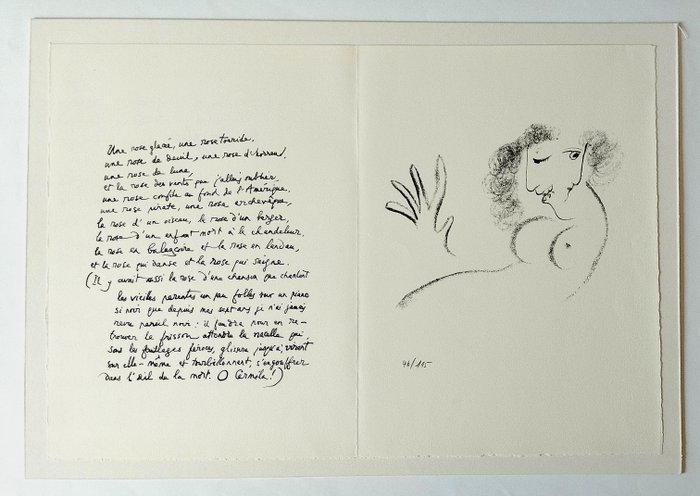 Une rose glacée, une rose torride,
une rose de deuil, une rose d'horreur,
une rose de lune,
et la rose des vents que j'allais oublier,
une rose confite au fond de l'Amérique,
une rose pirate, une rose archevêque,
la rose d'un oiseau, la rose d'un berger,
la rose d'un enfant mort à la chandeleur,
la rose en balançoire et la rose en landau,
et la rose qui danse et la rose qui saigne.
(Il y avait aussi la rose d'une chanson que chantaient
les vieilles parentes un peu folles sur un piano
si noir que depuis mes sept ans je n'ai jamais
revu pareil noir : il faudra pour en re-
trouver le frisson attendre la nacelle qui
sous les feuillages féroces, glissera jusqu'à virant
sur elle-même et tourbillonnant, s'engouffrer
dans l'œil de la mort. O !)
46/115